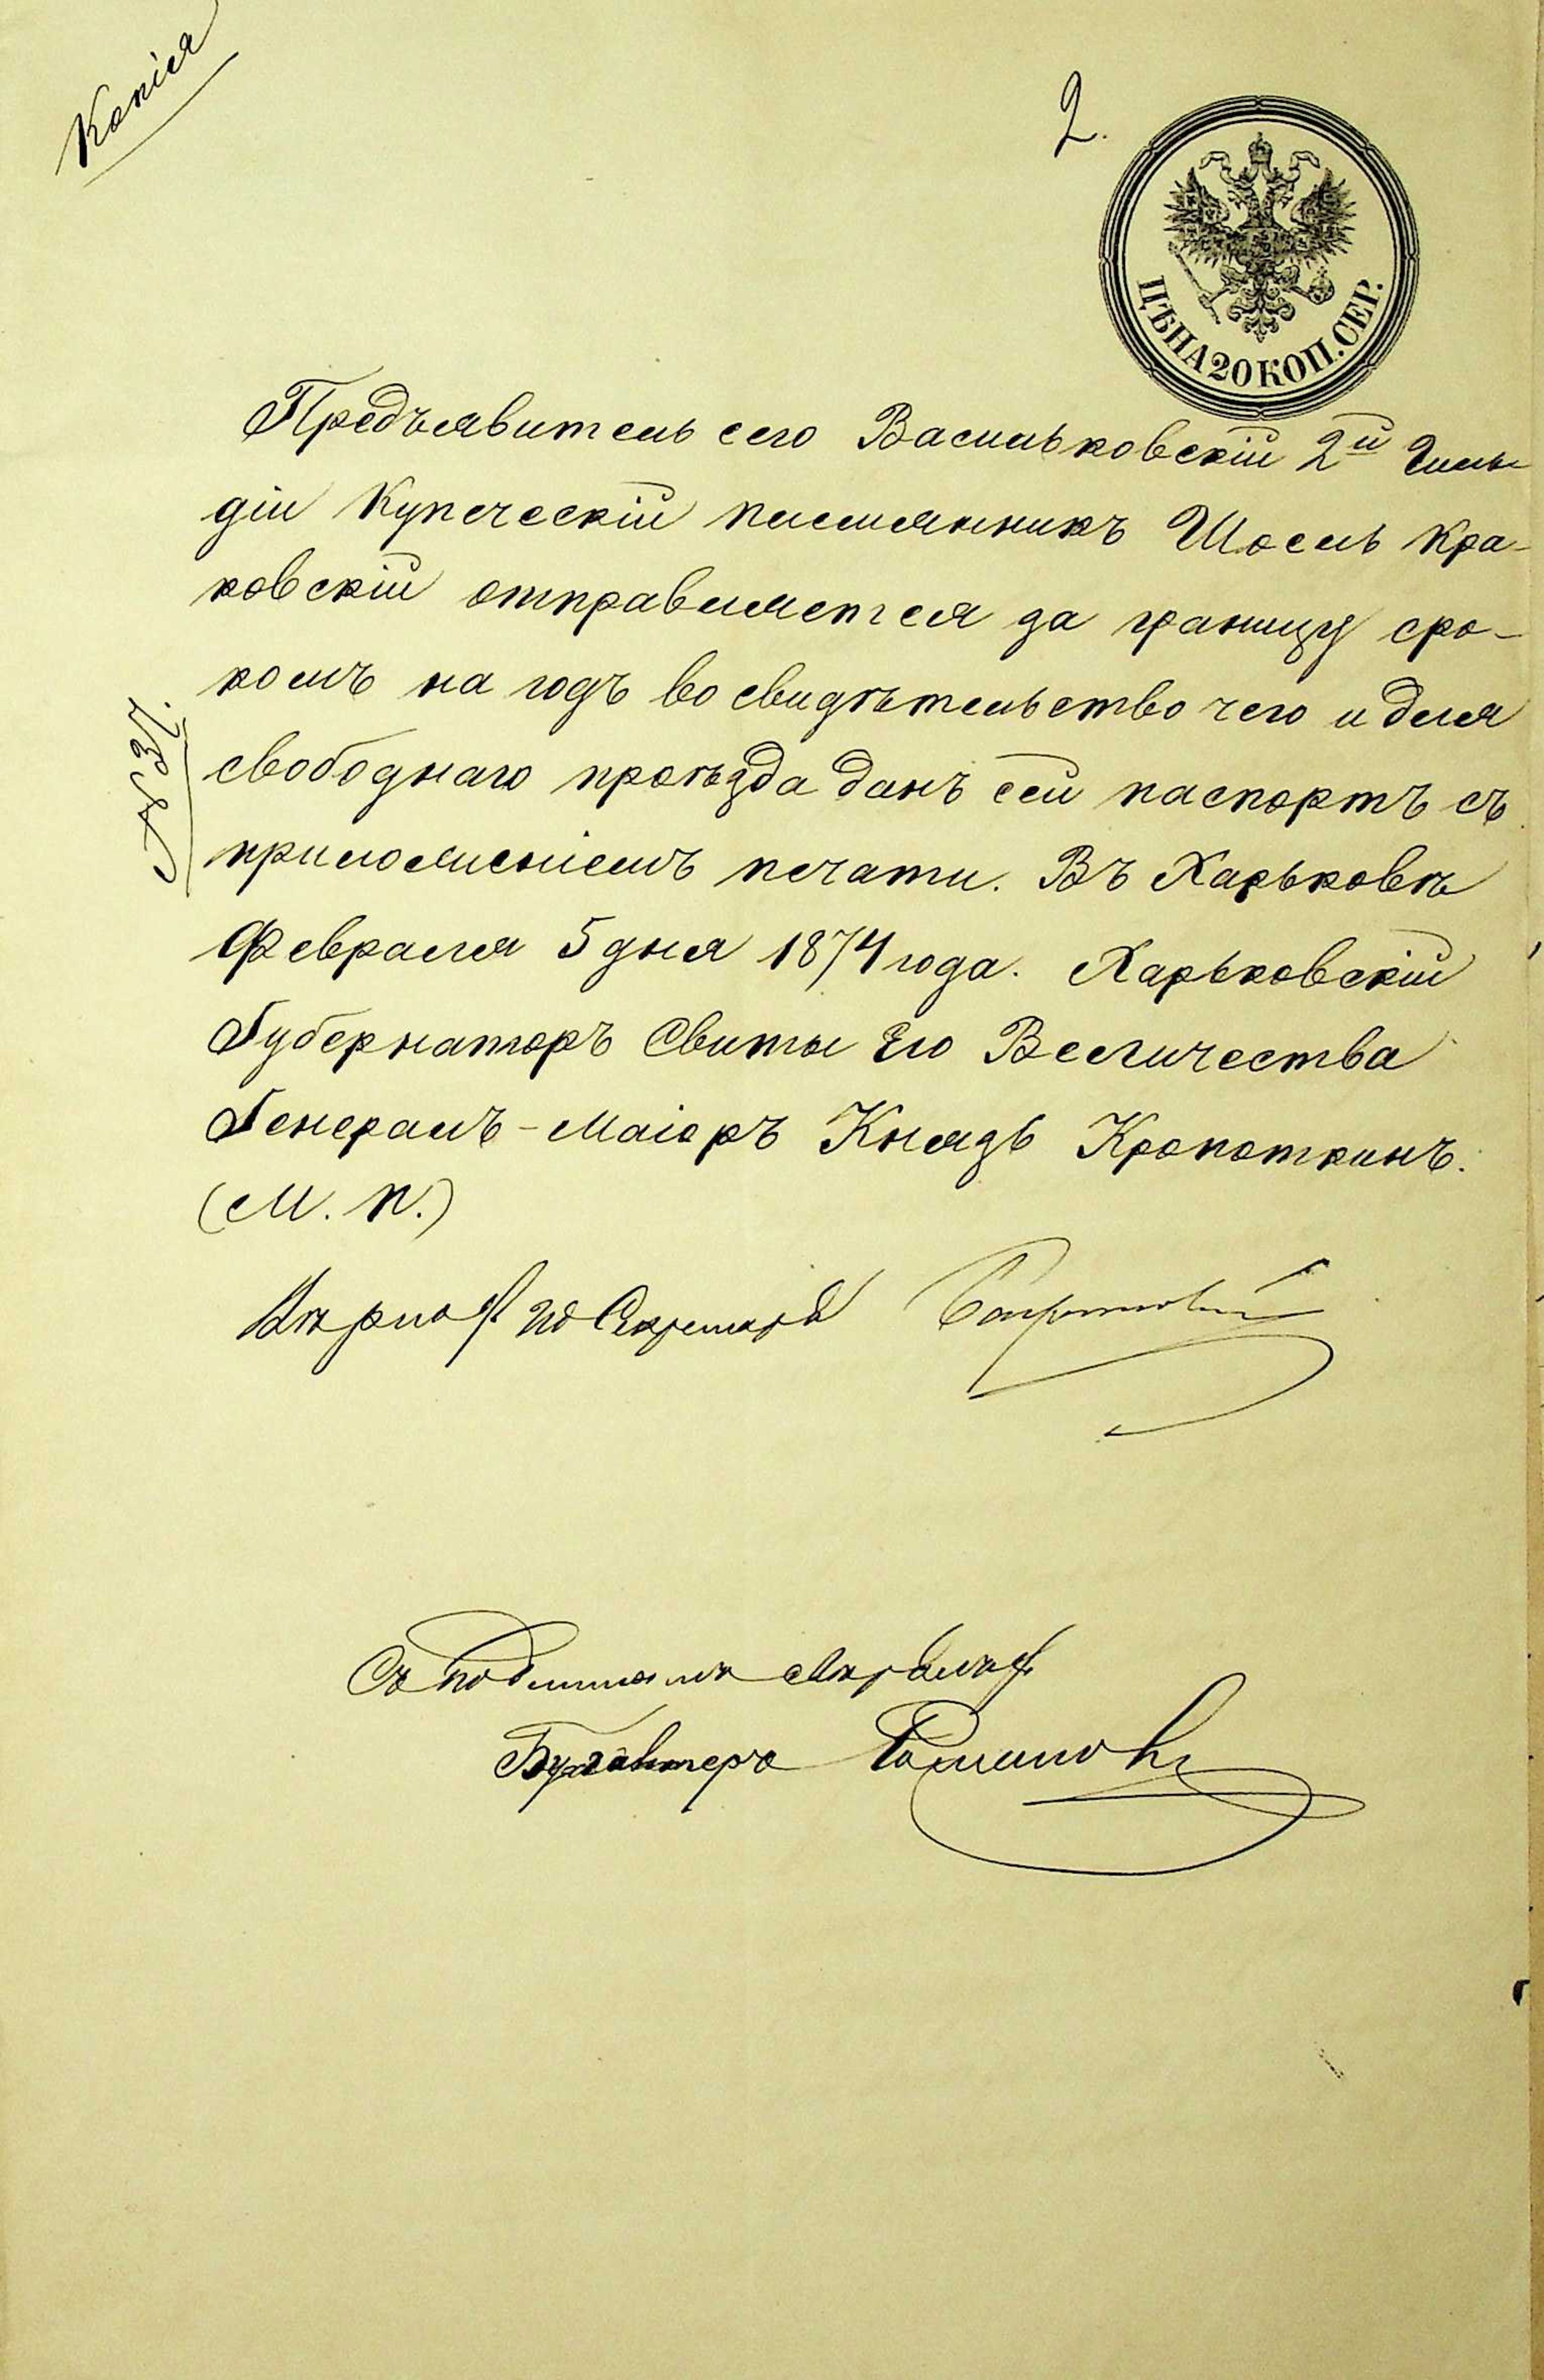 Копія
2.
ЦѢНА 20 КОП. СЕР.
Предъявитель сего Васильковскій 2й Гиль-
діи Купеческій племянникъ Шоель Кра-
ковскій отправляется за границу сро-
комъ на годъ во свидѣтельство чего и для
свободнаго проѣзда данъ сей паспортъ съ
приложеніемъ печати. Въ Харьковѣ
Февраля 5 дня 1874 года. Харьковскій
Губернаторъ Свиты Его Величества
Генералъ-Маіоръ Князь Кропоткинъ.
(М. П.)
№ 37.
Вѣрно: Секретарь
Съ подлиннымъ
Бухгалтеръ Романовъ